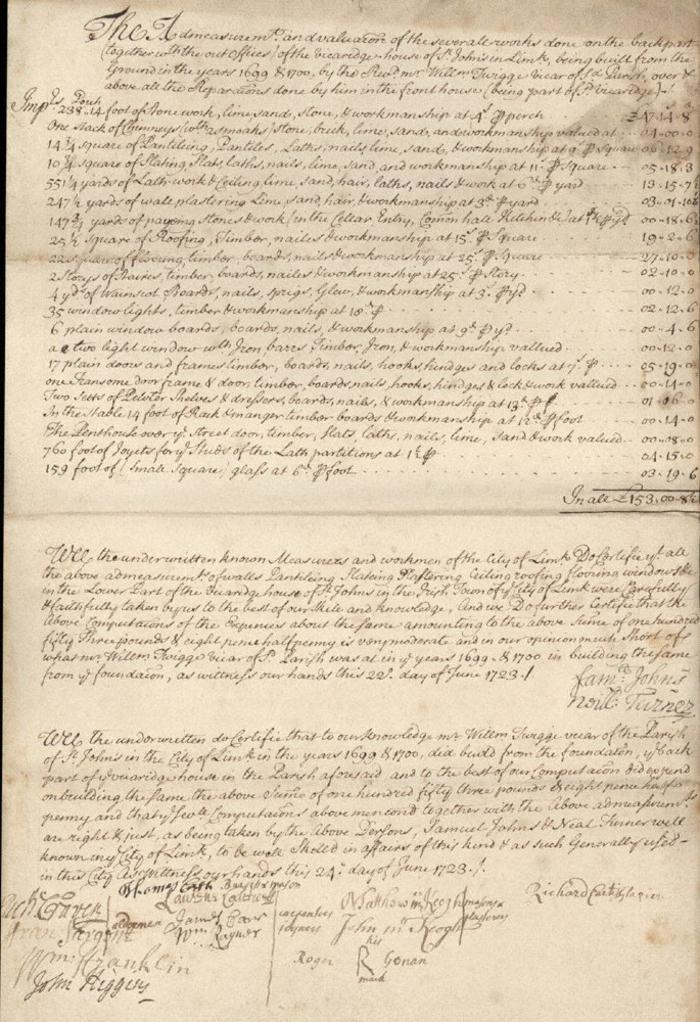 The Admeasuremt. and valuation of the severall works done on the back part
(together with the out Offices) of the vicaridge-house of St. Johns in Limk, being built from the
Ground in the years 1699 & 1700, by the Revd. mr. Willm. Twigge Vicar of sd. Parish, over &
above all the Reparations done by him in the front house (being part of sd. vicaridge)
Imps. 238.14 foot of stone work, lime, sand, stone, & workmanship at 4s. ⅌ perch £47-14-8
One Stack of Chimneys stone, brick, lime, sand, and workmanship valued at 04-00-0
square of Pantileing, Pantiles, Laths, nails, lime, sand, & workmanship at 9s. ⅌ Square 06-12-9
10 ¾ square of Slateing Slats, laths, nails, lime, sand, and workmanship at 11s. ⅌ Square 05-18-3
551 ¼ yards of Lath-work & Ceiling lime, sand, hair, laths, nails & work at 6d. ⅌ yard 13-15-7
247 ½ yards of wall plastering Lime, sand, hair, & workmanship at 3d. ⅌ yard 03-01-10
147 ¾ yards of paveing Stones & work (in the Cellar, Entry, Comon hall Kitchin &c) at ⅌ yd 00-18-6
25 ½ Square of Roofing, Timber, nailes & workmanship at 15s. ⅌ Square 19-2-6
22 square of flooring, timber, boards, nails & workmanship at 25s. ⅌ Square 27-10-0
2 Storys of Staires, timber, boards, nails & workmanship at 25s. ⅌ Story 02-10-0
4 yds of Wainscot Boards, nails, sprigs, Glew, & workmanship at 3s. ⅌ yd 00-12-0
35 window lights, timber & workmanship at 18d. ⅌ 02-12-6
6 plain window boards, boards, nails, & workmanship at 9d. ⅌ yd. 00-4-6
a two light window wth Iron barrs Timber, Iron, & workmanship vallued 00-12-0
17 plain doors and frames timber, boards, nails, hooks, hindges and locks at 7s. ⅌ 05-19-0
one Transome door frame & door, timber, boards, nails, hooks, hindges & lock & work vallued 00-14-0
Two Setts of Pewter Shelves & dressers, boards, nails, & workmanship at 13s. ⅌ 01-06-0
In the Stable 14 foot of Rack & manger timber boards & workmanship at 12d. ⅌ foot 00-14-0
The Penthouse over ye. Street door, timber, Slats, laths, nails, lime, Sand & work valued 00-08-0
760 foot of Joyets for ye Studs of the Lath partitions at ⅌ 04-15-0
159 foot of (Small Square) glass at 6d. ⅌ foot 03-19-6
In all £153-00-8½
Wee the underwritten known Measurers and workmen of the City of Limk Do Certifie yt. all
the above admeasuremts. of walls Pantileing Slateing Plastering Ceiling roofing flooring windows &c
in the Lower Part of the vicaridge house of St. Johns in the Irish Town of ye City of Limk were Carefully
& faithfully taken by us to the best of our Skile and knowledge, And we Do further Certifie that the
Above Computations of the Expences about the same amounting to the above Sume of one hundred
fifty three pounds & eight pence halfpenny is very moderate and in our opinion much Short of
what mr. Willm. Twigge vicar of sd. Parish was at in ye years 1699 & 1700 in building the same
from ye foundation, as wittness our hands this 22d. day of June 1723.
Saml. Johns
Neill Turner
Wee the underwritten do Certifie that to our knowledge mr. Willm Twigge vicar of the Parish
of St. Johns in the City of Limk in the years 1699 & 1700, did build from the foundation, ye Back
part of ye vicaridge house in the Parish aforesaid, and to the best of our Computation did expend
on building the same the above Sume of one hundred fifty three pounds & eight pence half
penny and that ye sevll Computations above mencond together with the Above admeasurmts.
are right & just, as being taken by the Above Persons, Samuel Johns & Neal Turner well
known in ye City of Limk, to be well Skilled in affairs of this kind & as such Generally used
in this City As Wittness our hands this 24th. day of June 1723.
James
Richard
Matthew mcKeogh
aldermen
James
Wm. Rayner
carpenters
joyners
John mcKeogh
Fran Sargent
Wm. Franklin
his
Roger R Gonan
mark
John Higgins